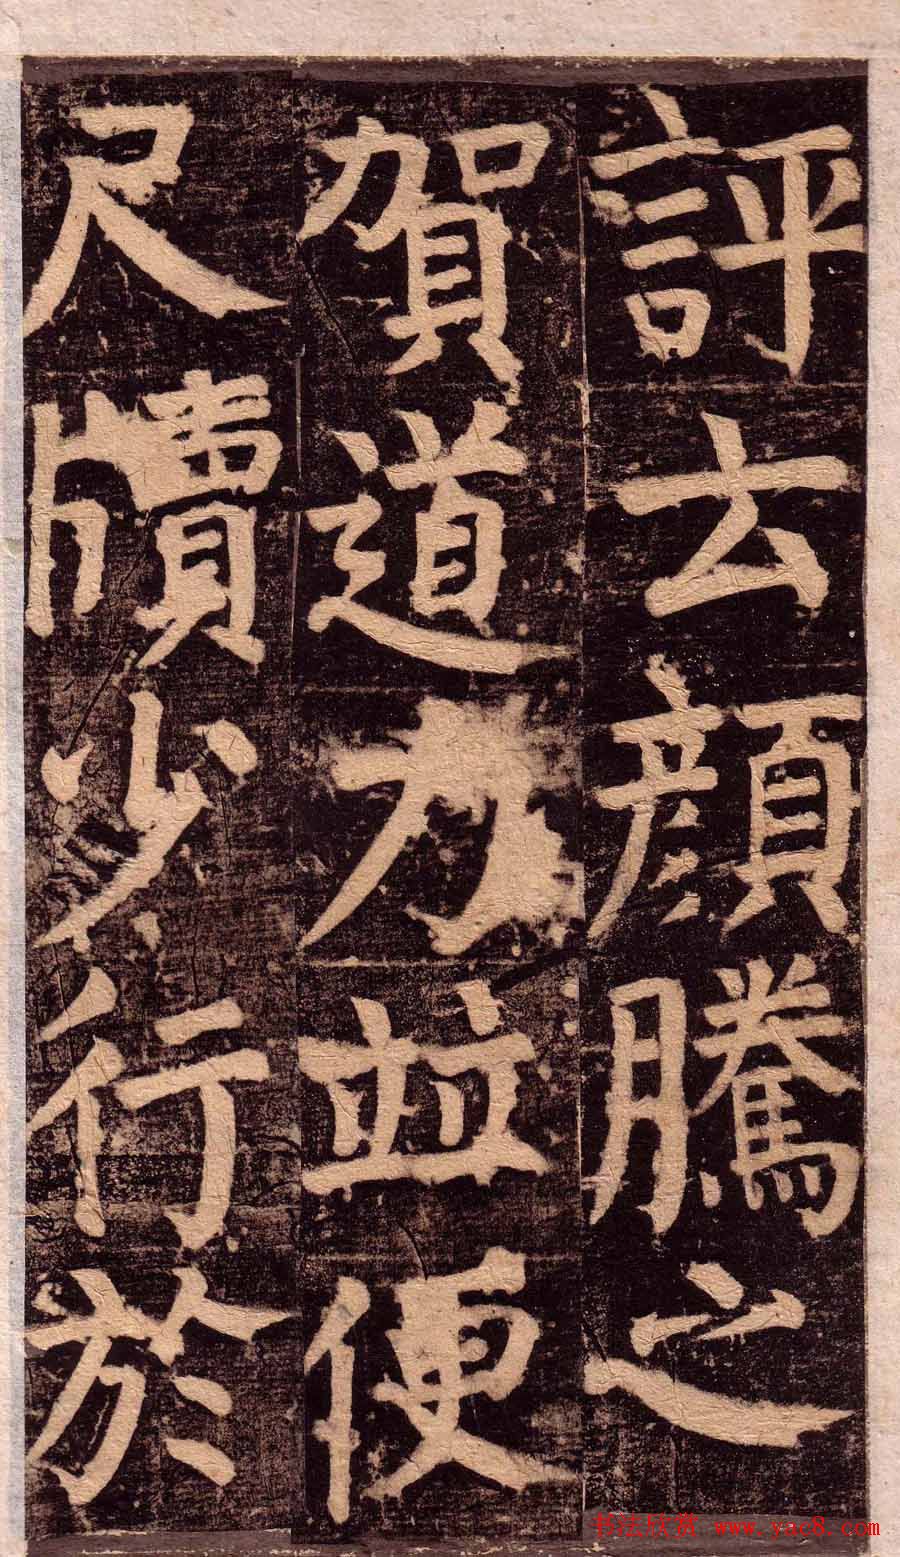 評去顔騰之
賀道力並便
尺牘少行於
书法欣赏 www.yac8.com